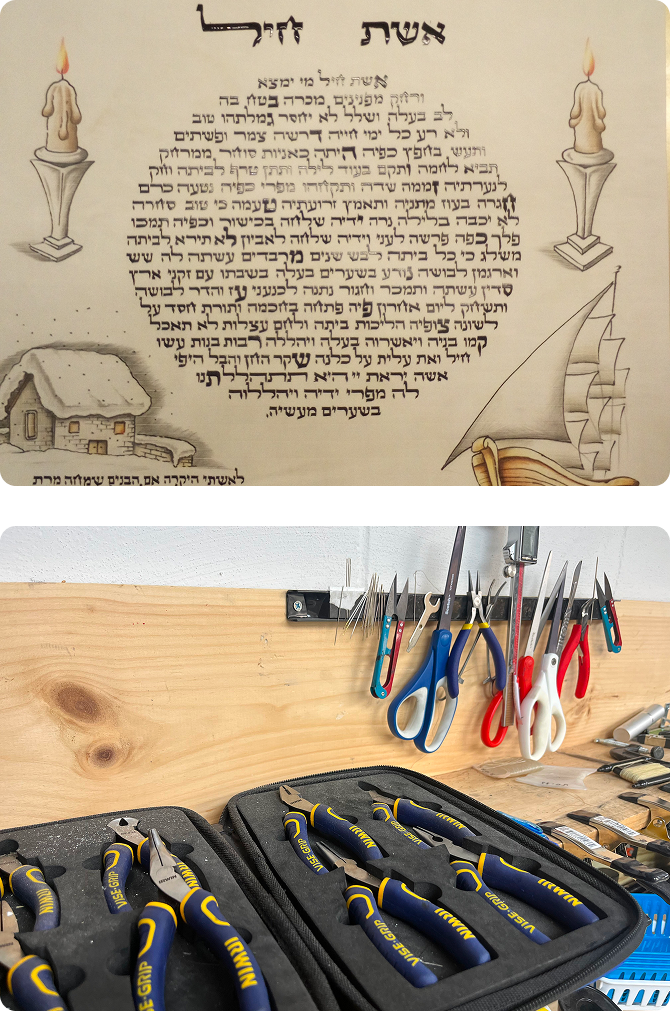 אשת חיל
אשת חיל מי ימצא
ורחק מפנינים מכרה בטח בה
לב בעלה ושלל לא יחסר גמלתהו טוב
ולא רע כל ימי חייה דרשה צמר ופשתים
ותעש בחפץ כפיה היתה כאניות סוחר ממרחק
תביא לחמה ותקם בעוד לילה ותתן טרף לביתה וחק
לנערתיה זממה שדה ותקחהו מפרי כפיה נטעה כרם
חגרה בעוז מתניה ותאמץ זרועתיה טעמה כי טוב סחרה
לא יכבה בלילה נרה ידיה שלחה בכישור וכפיה תמכו
פלך כפה פרשה לעני וידיה שלחה לאביון לא תירא לביתה
משלג כי כל ביתה לבש שנים מרבדים עשתה לה שש
וארגמן לבושה נודע בשערים בעלה בשבתו עם זקני ארץ
סדין עשתה ותמכר וחגור נתנה לכנעני עז והדר לבושה
ותשחק ליום אחרון פיה פתחה בחכמה ותורת חסד על
לשונה צופיה הליכות ביתה ולחם עצלות לא תאכל
קמו בניה ויאשרוה בעלה ויהללה רבות בנות עשו
חיל ואת עלית על כלנה שקר החן והבל היפי
אשה יראת יי היא תתהלל תנו
לה מפרי ידיה ויהללוה
בשערים מעשיה.
לאשתי היקרה אם הבנים שמחה מרת
IRWIN
VISE-GRIP
IRWIN
VISE-GRIP
IRWIN
VISE-GRIP
IRWIN
VISE-GRIP
IRWIN
VISE-GRIP
IRWIN
VISE-GRIP
IRWIN